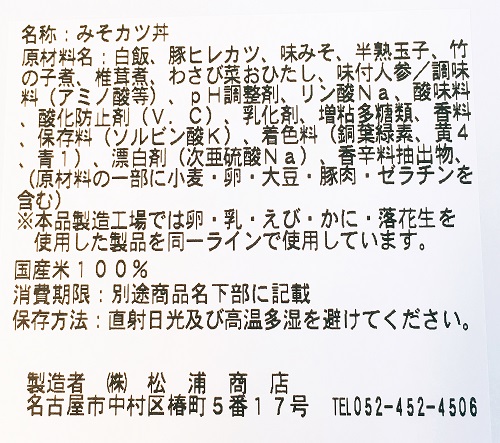 名称：みそカツ丼
原材料名：白飯、豚ヒレカツ、味みそ、半熟玉子、竹
の子煮、椎茸煮、わさび菜おひたし、味付人参／調味
料（アミノ酸等）、ｐＨ調整剤、リン酸Ｎａ、酸味料
、酸化防止剤（Ｖ．Ｃ）、乳化剤、増粘多糖類、香料
、保存料（ソルビン酸Ｋ）、着色料（銅葉緑素、黄４
、青１）、漂白剤（次亜硫酸Ｎａ）、香辛料抽出物、
（原材料の一部に小麦・卵・大豆・豚肉・ゼラチンを
含む）
※本品製造工場では卵・乳・えび・かに・落花生を
使用した製品を同一ラインで使用しています。
国産米１００％
消費期限：別途商品名下部に記載
保存方法：直射日光及び高温多湿を避けてください。
製造者　㈱　松浦商店
名古屋市中村区椿町５番１７号　TEL052-452-4506